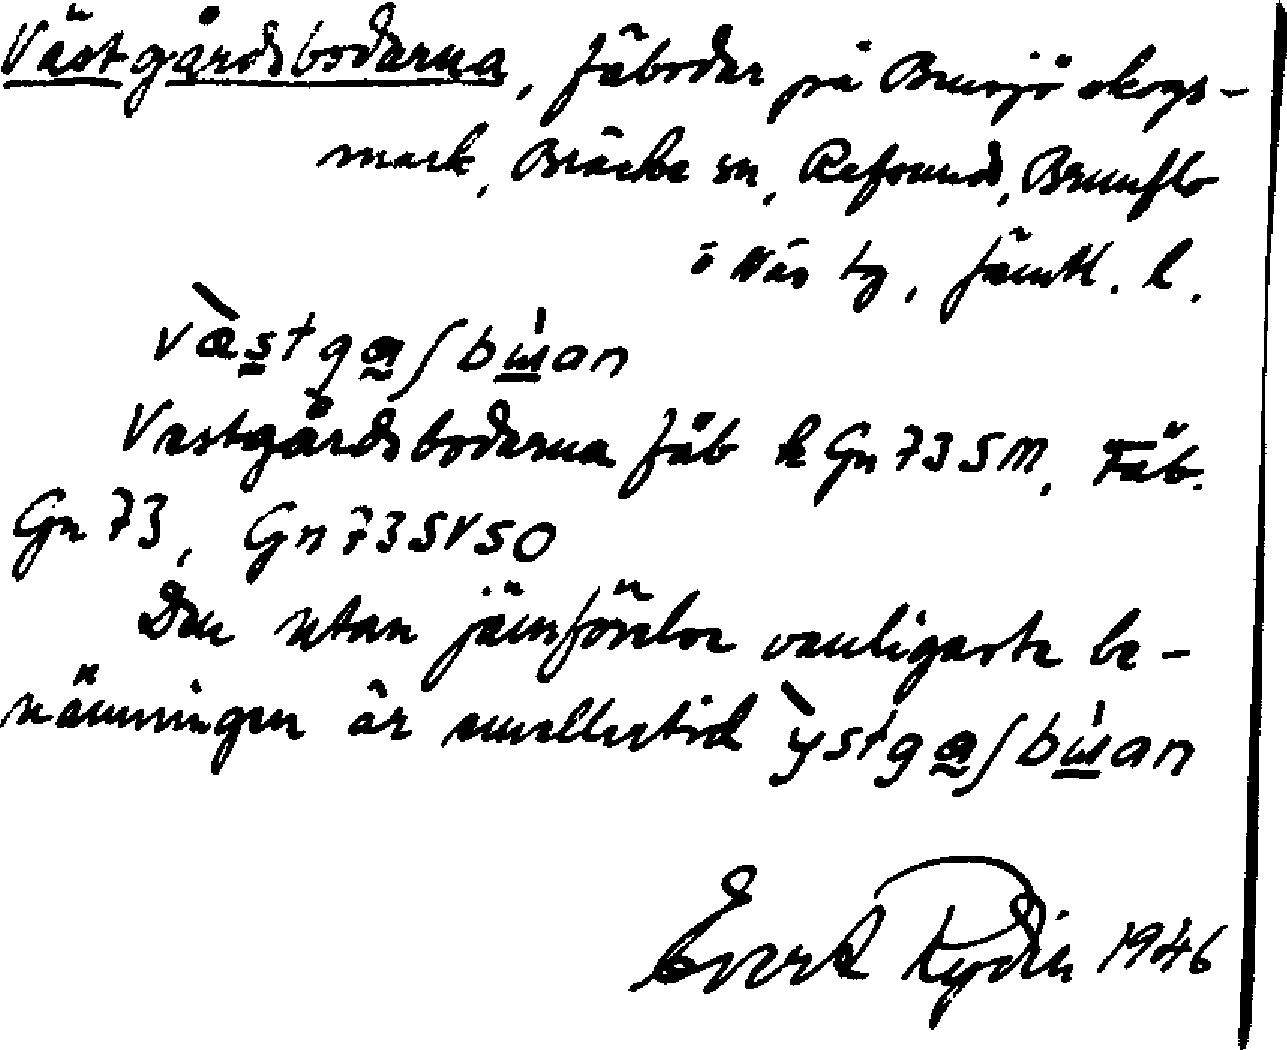 Västgårdsbodarna, fäbodar på Bensjö skogs-
mark, Bräcke sn, Refsunds, Brunflo
o Näs tg, Jämtl. l.
væ̀stgaʃbúɯan
Västgårdsbodarna fäb k Gn 73 SM, Fäb.
Gn 73, Gn 73 SVSO
Den utan jämförelse vanligaste be-
nämningen är emellertid ỳstgaʃbúɯan
Evert 1946